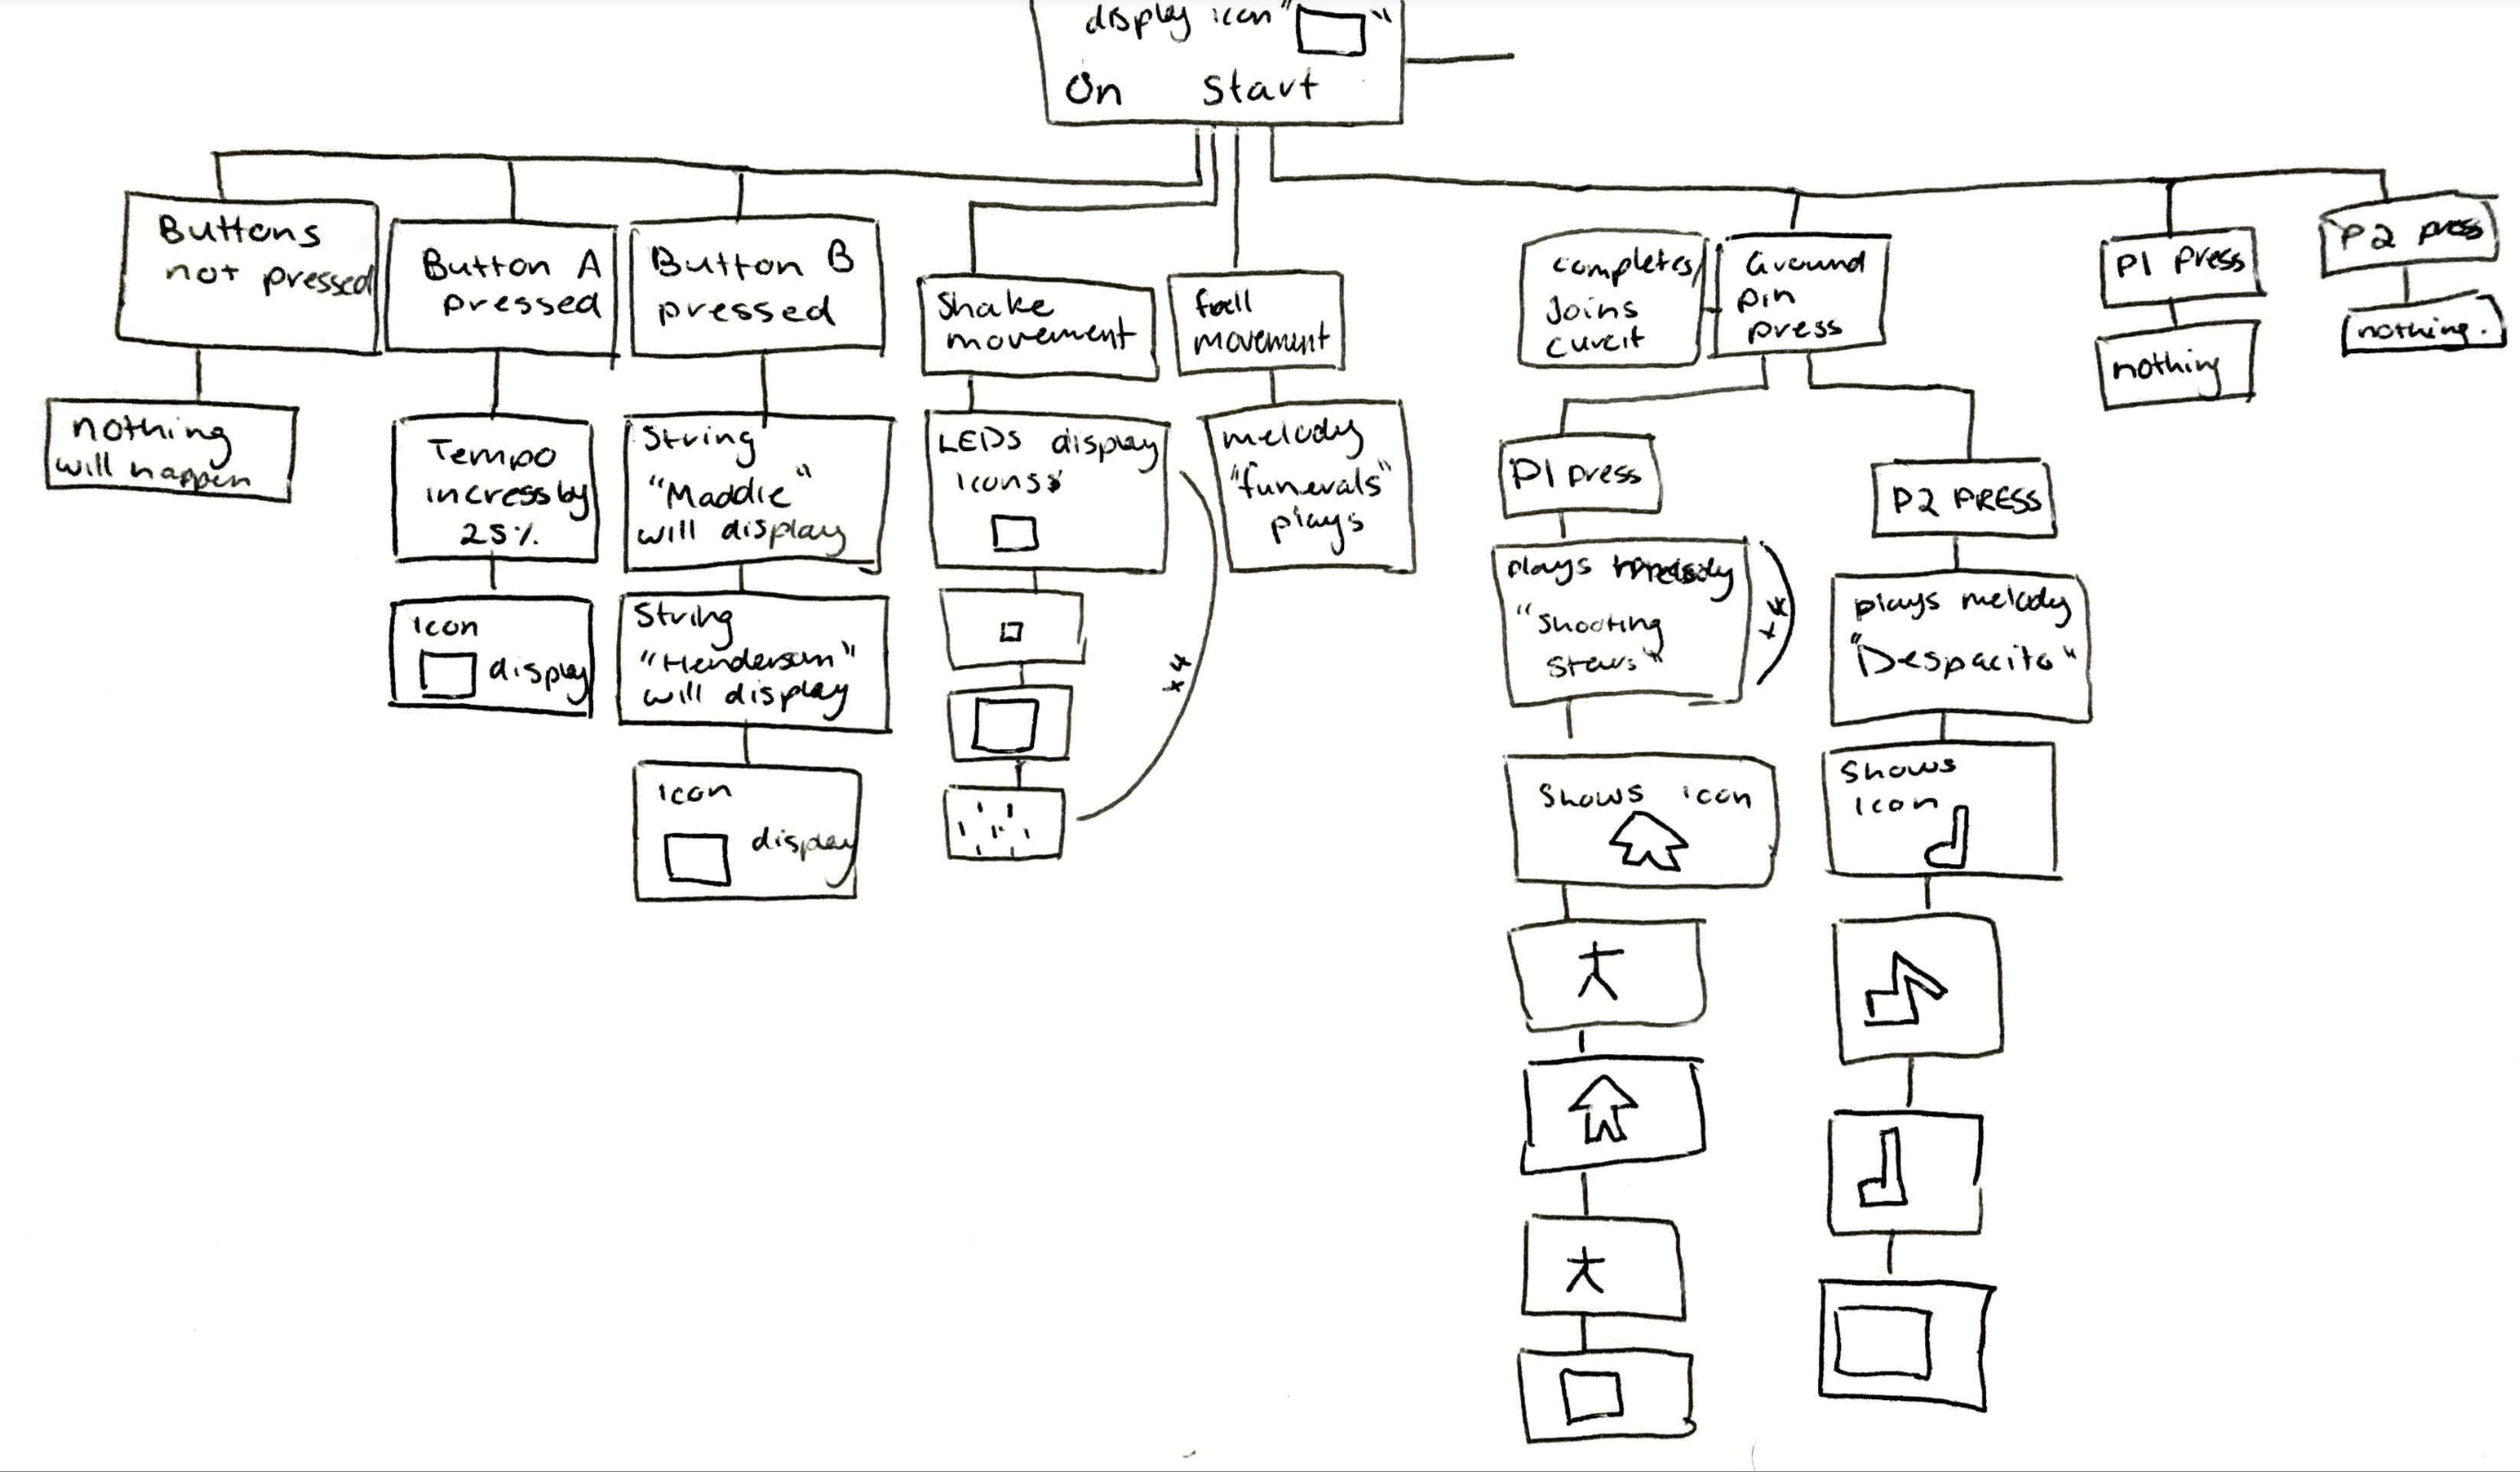 display icon " "
On start
Buttons
not pressed
nothing
will happen
Button A
pressed
Tempo
incress by
25%
icon
display
Button B
pressed
String
"Maddie"
will display
String
"Henderson"
will display
icon
display
Shake
movement
LEDS display
icons
fall
movement
melody
"funerals"
plays
completes/
Joins
curcit
Ground
pin
press
P1 press
plays melody
"Shooting
Stars"
Shows icon
P2 PRESS
plays melody
"Despacito"
Shows
icon
P1 press
nothing
P2 press
nothing.